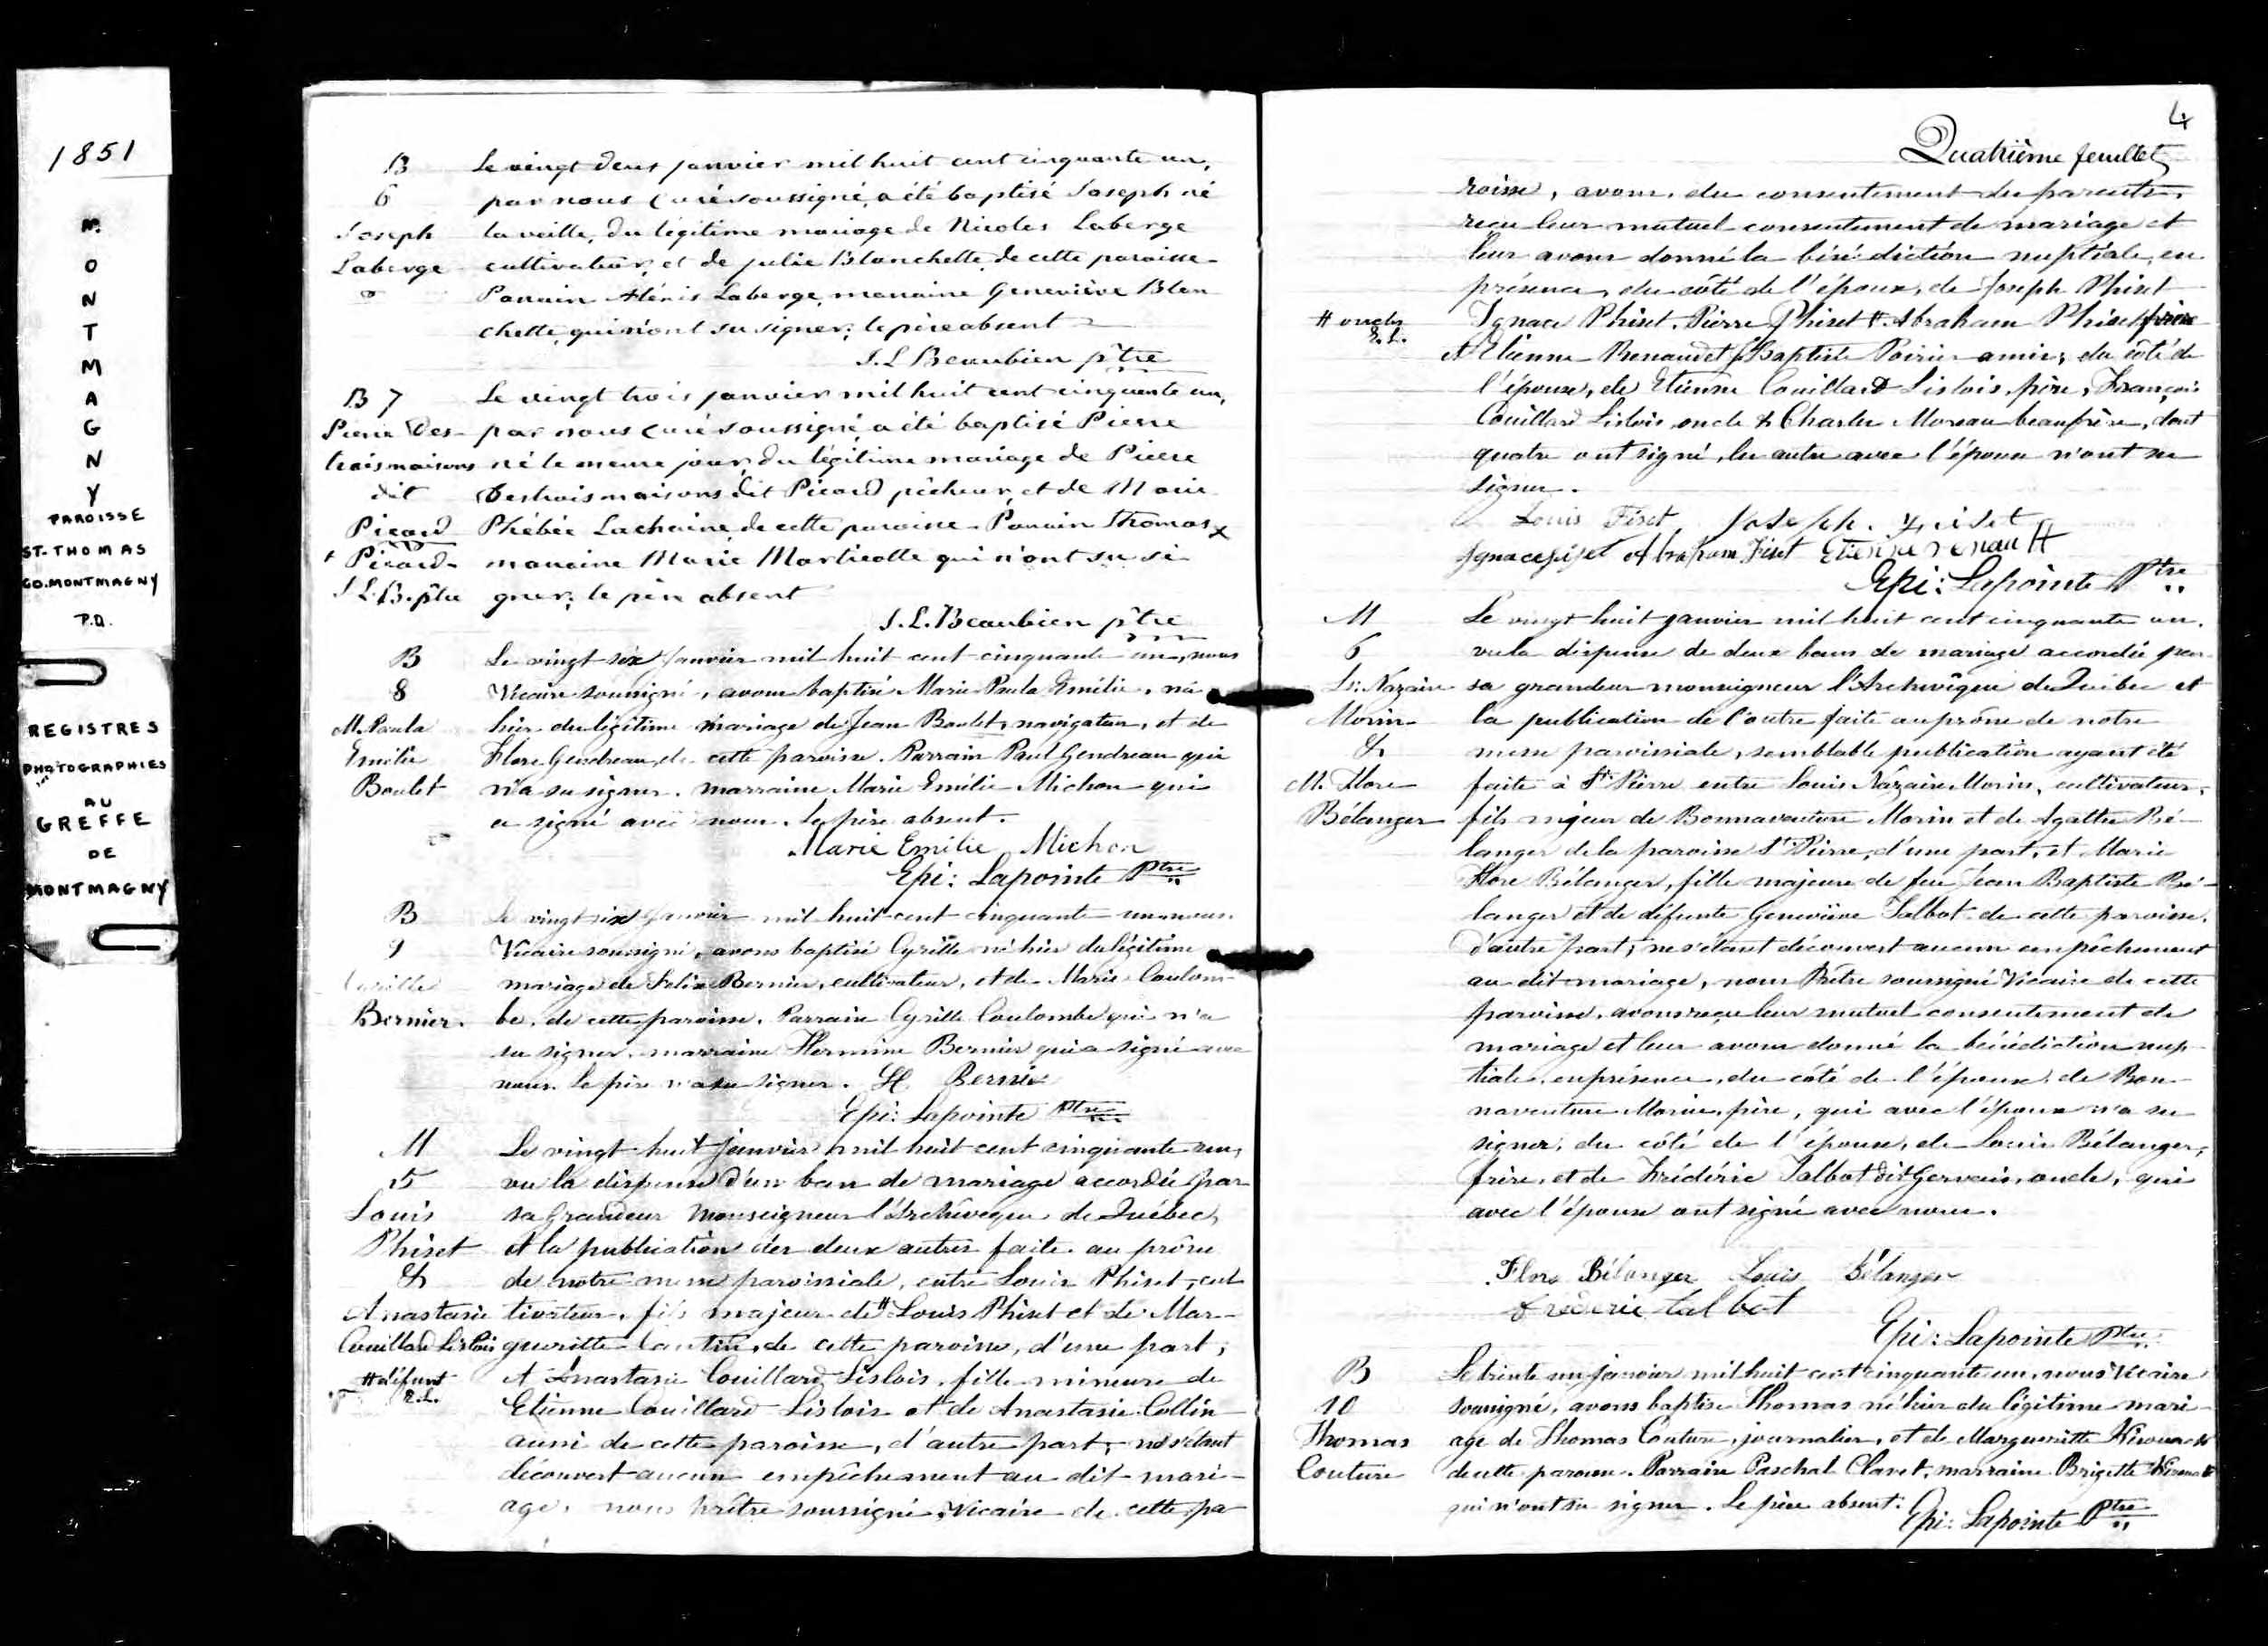 1851
M.
O
N
T
M
A
G
N
Y
PAROISSE
ST-THOMAS
CO.MONTMAGNY
P.Q.
REGISTRES
PHOTOGRAPHIES
AU
GREFFE
DE
MONTMAGNY
B
6
Joseph
Laberge
Le vingt deux janvier mil huit cent cinquante un,
par nous Curé soussigné, a été baptisé Joseph né
la veille, du légitime mariage de Nicolas Laberge
cultivateur, et de Julie Blanchette de cette paroisse
Parrain Alexis Laberge, marraine Geneviève Blan
chette, qui n'ont su signer; le père absent
J. L Beaubien ptre
B 7
Pierre Des-
troismaisons
dit
Picard
+ Picard
J. L. B. ptre
Le vingt trois janvier mil huit cent cinquante un,
par nous Curé soussigné, a été baptisé Pierre
né le meme jour, du légitime mariage de Pierre
Destroismaisons dit Picard pêcheur, et de Marie
Phébée Lachaine, de cette paroisse. Parrain Thomas x
marraine Marie Marticotte qui n'ont su si
gner; le père absent
J. L. Beaubien ptre
B
8
M. Paula
Emélie
Boulet
Le vingt six Janvier mil huit cent cinquante un, nous
Vicaire soussigné, avons baptisé Marie Paula Emélie, née
hier du légitime mariage de Jean Boulet, navigateur, et de
Flore Gendreau, de cette paroisse. Parrain Paul Gendreau qui
n'a su signer. marraine Marie Emélie Michon qui
a signé avec nous. Le père absent.
Marie Emélie Michon
Epi: Lapointe Ptre
B
9
Cyrille
Bernier.
Le vingt six Janvier mil huit cent cinquante un, nous
Vicaire soussigné, avons baptisé Cyrille né hier du légitime
mariage de Felix Bernier, cultivateur, et de Marie Coulom-
be, de cette paroisse. Parrain Cyrille Coulombe qui n'a
su signer. marraine Hermine Bernier qui a signé avec
nous. Le père n'a su signer. H Bernier
Epi: Lapointe Ptre
M
5
Louis
Phiset
&
Anastasie
Couillard Lislois
# défunt
E.L.
Le vingt huit janvier mil huit cent cinquante un,
vu la dispense d'un ban de mariage accordée par
sa Grandeur Monseigneur l'Archevêque de Québec,
et la publication des deux autres faite au prône
de notre messe paroissiale, entre Louis Phiset, cul
tivateur, fils majeur de # Louis Phiset et de Mar-
gueritte de cette paroisse, d'une part;
et Anastasie Couillard Lislois, fille mineure de
Etienne Couillard Lislois et de Anastasie Collin
aussi de cette paroisse, d'autre part; ne s'étant
découvert aucun empêchement au dit mari-
age, nous prêtre soussigné, Vicaire de cette pa
4
Quatrième feuillet
roisse, avons, du consentement des parents,
reçu leur mutuel consentement de mariage et
leur avons donné la bénédiction nuptiale, en
présence, du côté de l'époux, de Joseph Phiset
# oncles
E.L.
Ignace Phiset, Pierre Phiset #, Abraham Phiset frère
et Etienne Renaud et J Baptiste Poirier amis; du côté de
l'épouse, de Etienne Couillard Lislois, père, François
Couillard Lislois, oncle & Charles Moreau beaufrère, dont
quatre ont signé, les autres avec l'époux n'ont su
signer.
Louis Fiset Joseph Fiset
Ignace fiset Abraham Fiset Etienne renault
Epi: Lapointe Ptre
M
6
Ls: Nazaire
Morin
&
M. Flore
Bélanger
Le vingt huit janvier mil huit cent cinquante un,
vu la dispense de deux bans de mariage accordée par
sa grandeur monseigneur l'Archevêque de Québec et
la publication de l'autre faite au prône de notre
messe paroissiale, semblable publication ayant été
faite à St Pierre entre Louis Nazaire Morin, cultivateur,
fils majeur de Bonnaventure Morin et de Agathe Bé-
langer de la paroisse St Pierre, d'une part, et Marie
Flore Bélanger, fille majeure de feu Jean Baptiste Bé-
langer et de défunte Geneviève Talbot de cette paroisse,
d'autre part; ne s'étant découvert aucun empêchement
au dit mariage, nous Prêtre soussigné Vicaire de cette
paroisse, avons reçu leur mutuel consentement de
mariage et leur avons donné la bénédiction nup-
tiale, en présence, du côté de l'époux, de Bon-
naventure Morin, père, qui avec l'époux n'a su
signer; du côté de l'épouse, de Louis Bélanger,
frère, et de Frédéric Talbot dit Gervais, oncle, qui
avec l'épouse ont signé avec nous.
Flore Bélanger Louis Bélanger
frederic talbot
Epi: Lapointe Ptre
B
10
Thomas
Couture
Le trente un janvier mil huit cent cinquante un, nous Vicaire
soussigné, avons baptisé Thomas né hier du légitime mari-
age de Thomas Couture, journalier, et de Margueritte
de cette paroisse. Parrain Paschal Clavet, marraine Brigette
qui n'ont su signer. Le père absent.
Epi: Lapointe Ptre